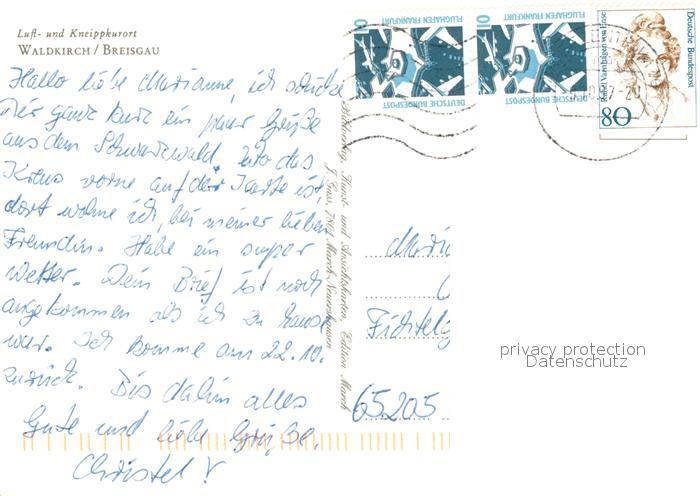 Luft- und Kneippkurort
WALDKIRCH / BREISGAU
Hallo liebe Marianne, ich schicke
Dir ganz kurz ein paar Grüße
aus dem Schwarzwald. Wo das
Kreuz vorne auf der Karte ist,
dort wohne ich, bei meiner lieben
Freundin. Habe ein super
Wetter. Dein Brief ist noch
angekommen als ich zu Hause
war. Ich komme am 22.10.
zurück. Bis dahin alles
Gute und liebe Grüße.
Christel
Kunst- und Ansichtskarten, Edition March
J. Goss, 7801 March-Neuershausen
FLUGHAFEN FRANKFURT
10
DEUTSCHE BUNDESPOST
FLUGHAFEN FRANKFURT
10
DEUTSCHE BUNDESPOST
Rahel Varnhagen von Ense
Deutsche Bundespost
80
Mari
Fichtelg
65205
privacy protection
Datenschutz